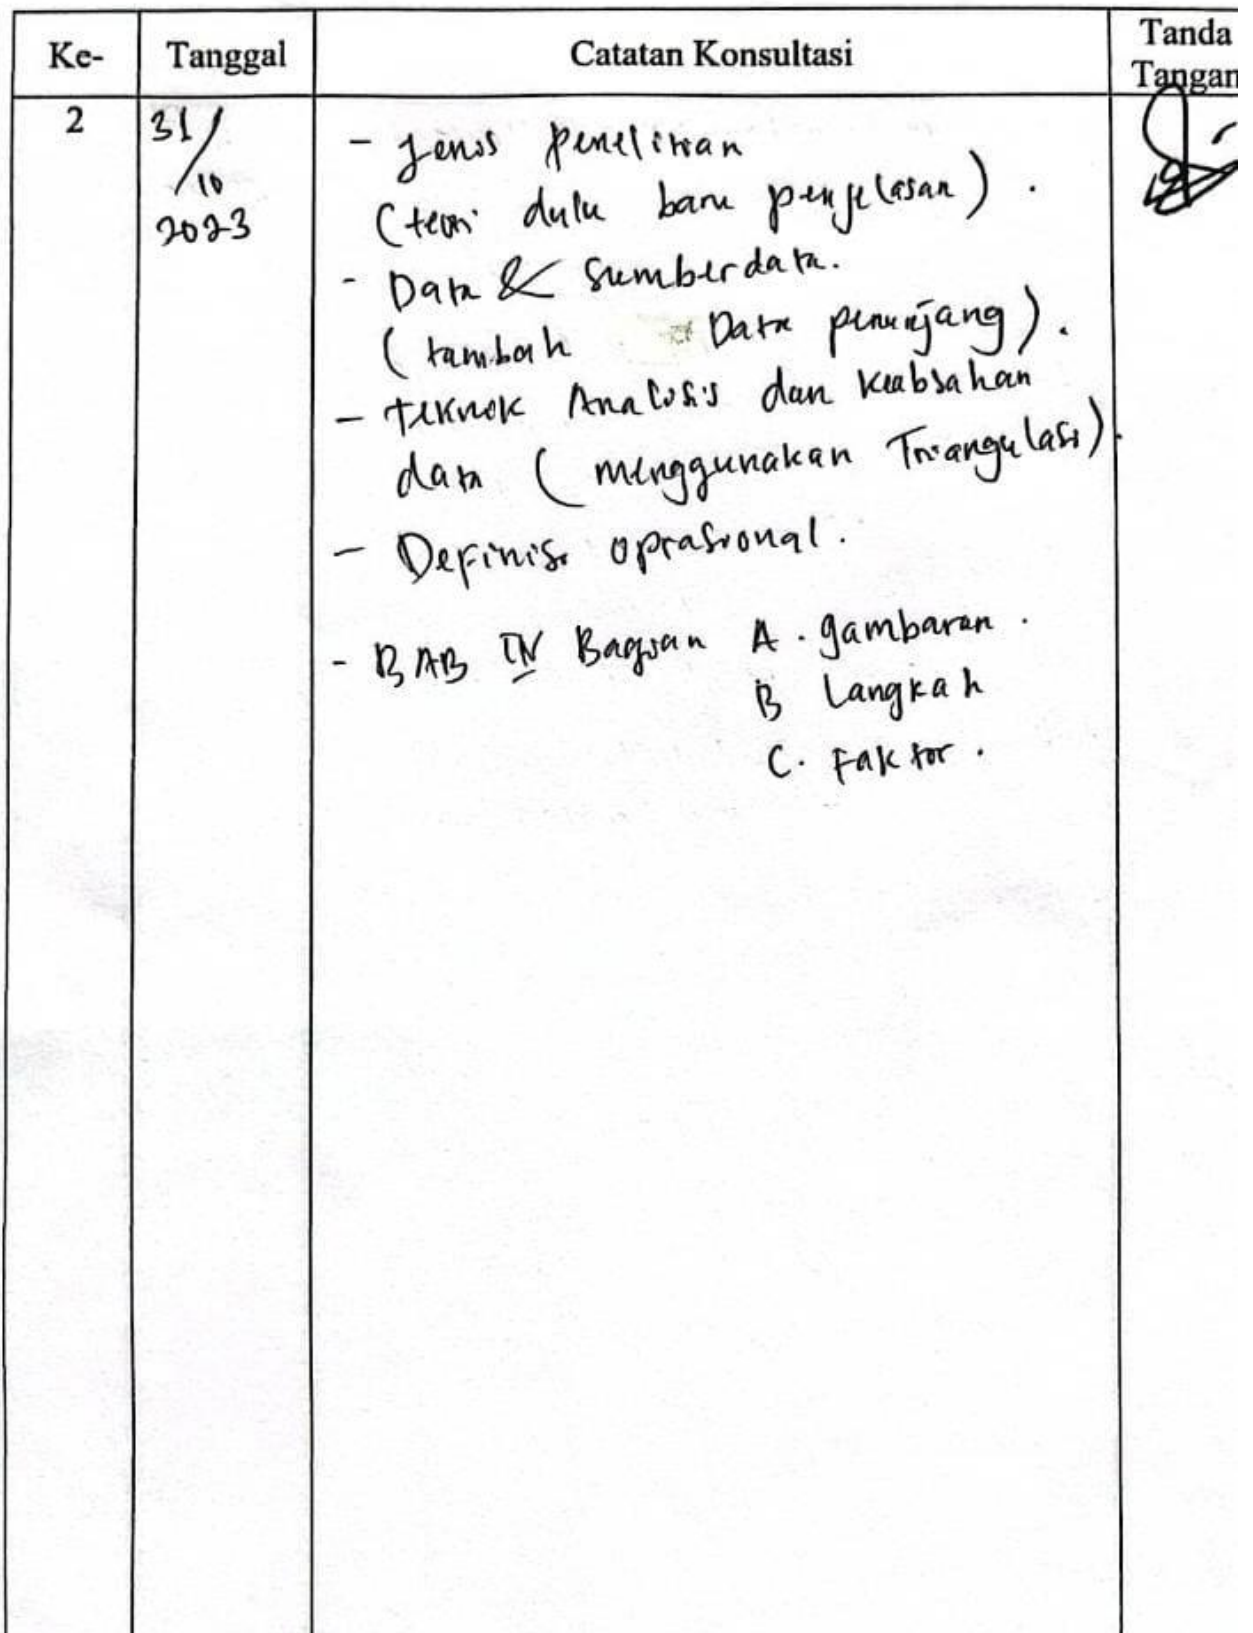 Ke- Tanggal Catatan Konsultasi Tanda Tangan
2 31/10 2023
- Jenis penelitian
(teori dulu baru penjelasan).
- Data & Sumber data.
(tambah Data penunjang).
- Teknik Analisis dan keabsahan
data (menggunakan Triangulasi).
- Definisi oprasional.
- BAB IV Bagian A. gambaran.
B Langkah
C. Faktor.